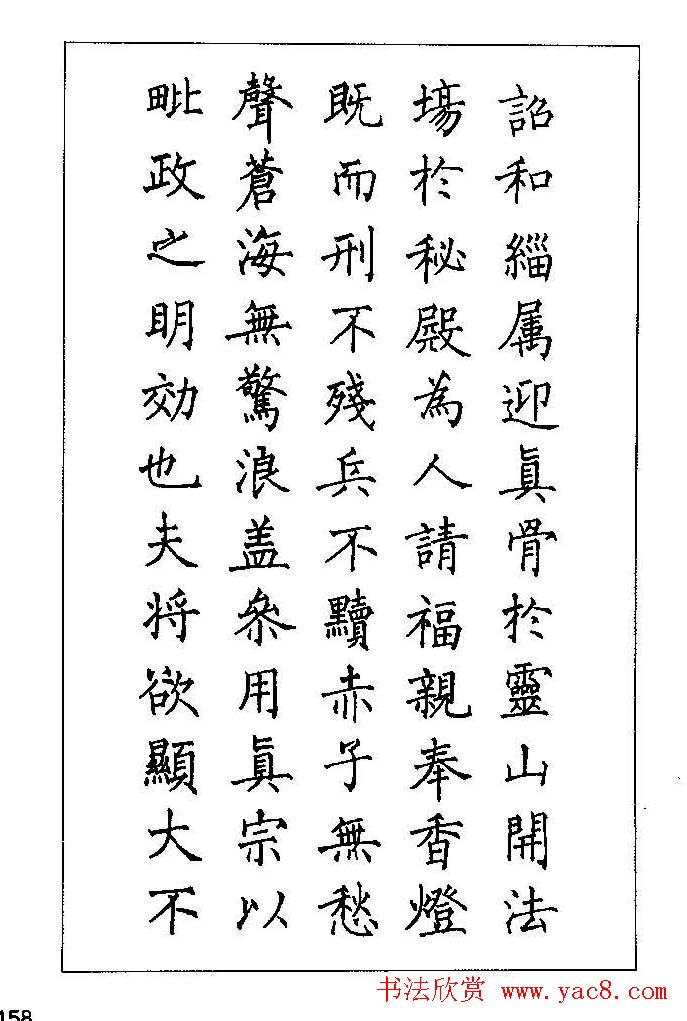 詔和緇属迎真骨於靈山開法
場於秘殿為人請福親奉香燈
既而刑不殘兵不黷赤子無愁
聲蒼海無驚浪盖叅用真宗以
毗政之明效也夫将欲顯大不
158
书法欣赏 www.yac8.com